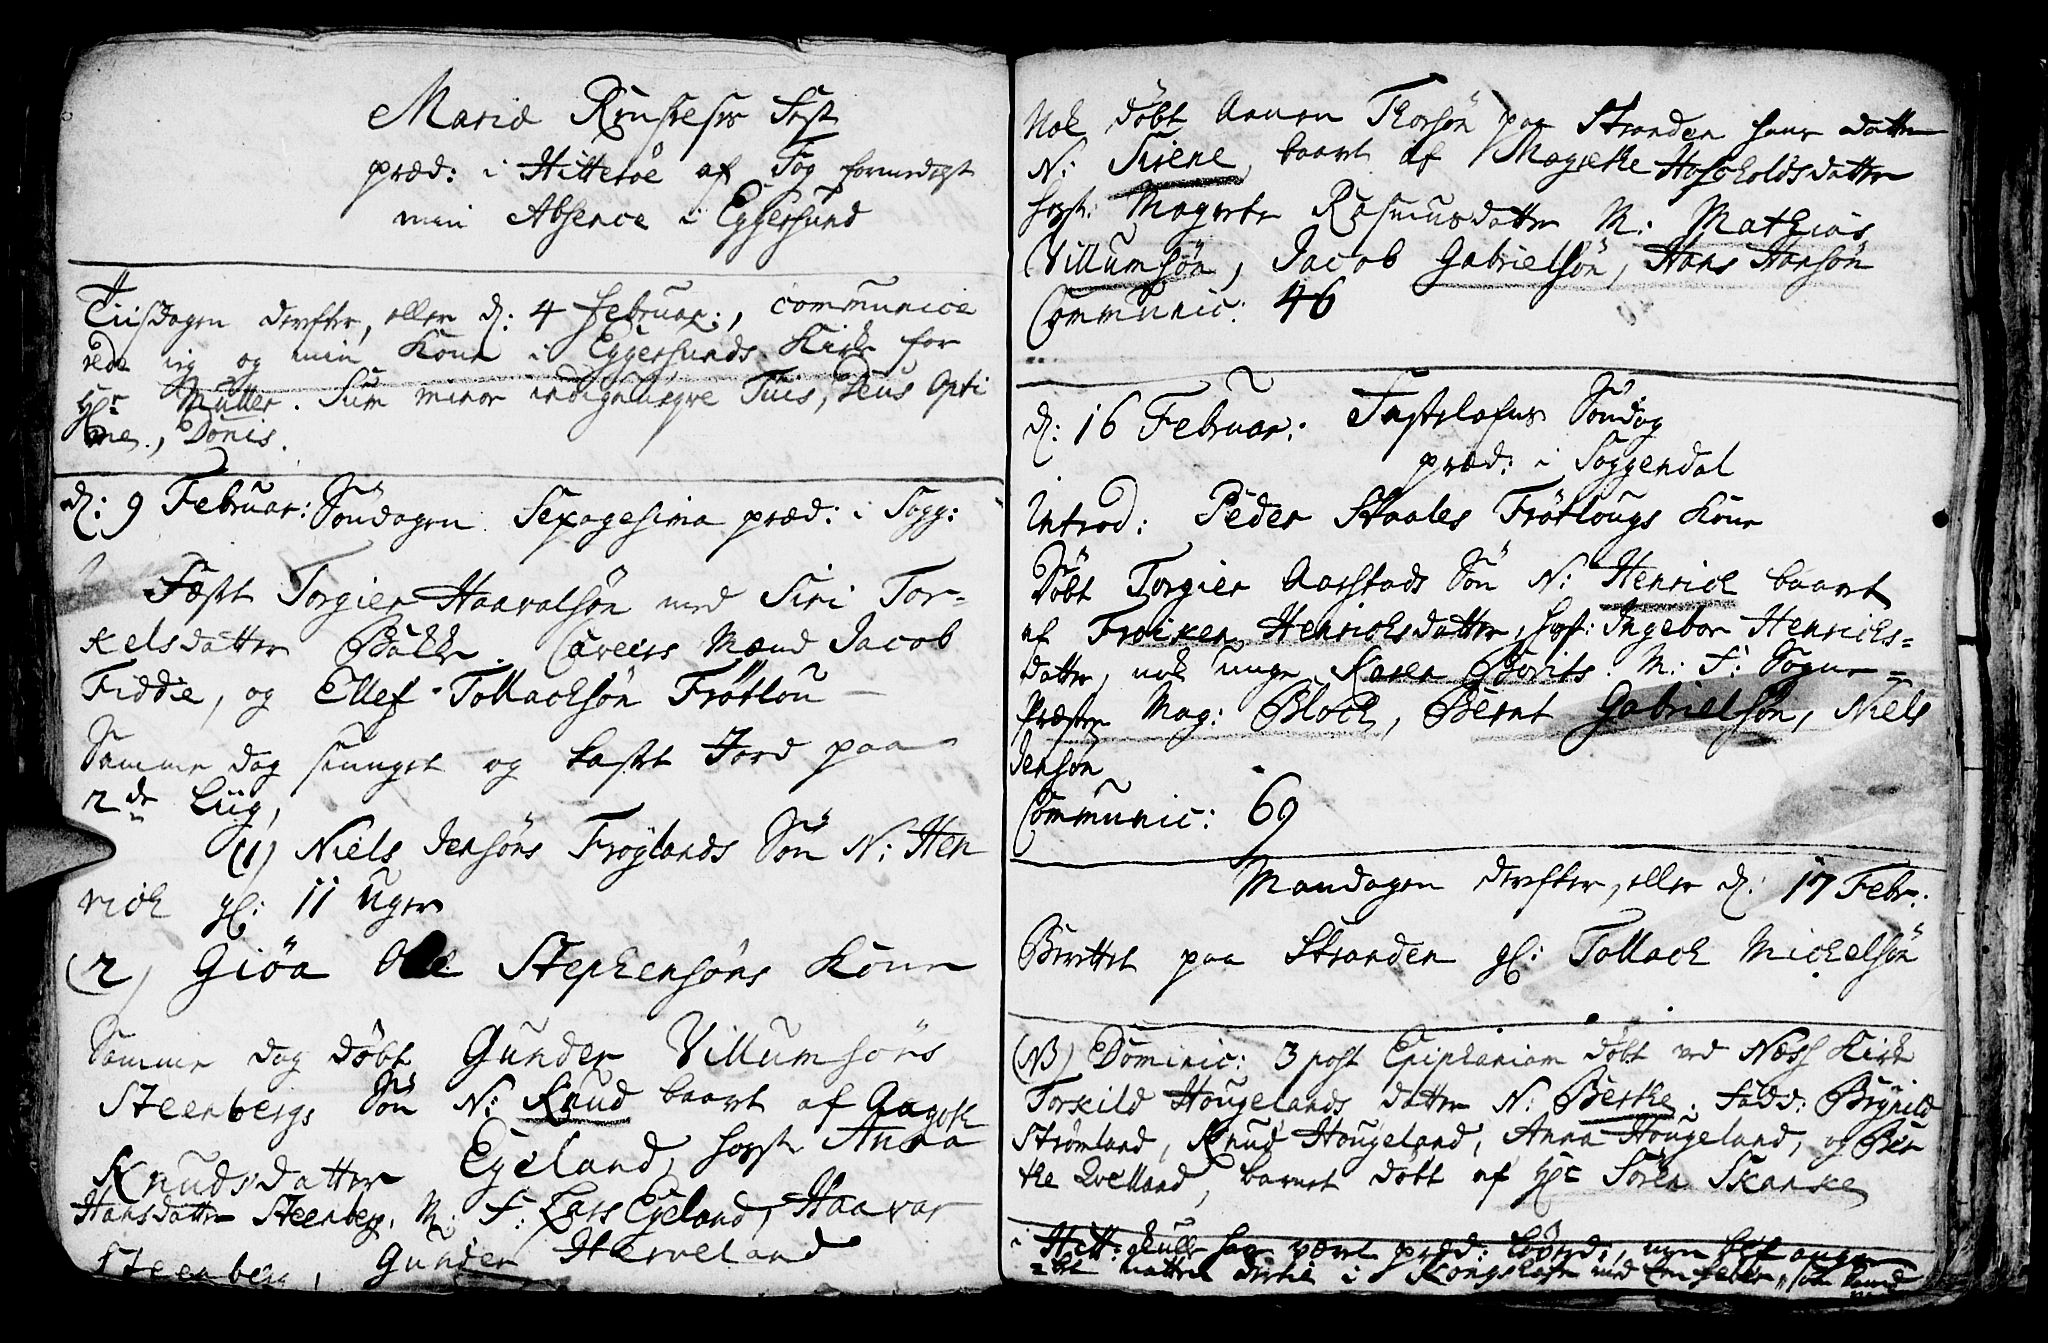 Mariæ Renselses Fest
præd: i Hitterøe af Fog formedelst
min Absence i Eggersund
Tiisdagen derefter, eller d: 4 Februar:, communice
rede ieg og min Kone i Eggersunds Kirke for
Hr Müller. Sum minor indignusqve Tuis, Deus Opti
me, Donis.
d: 9 Februar: Søndagen Sexagesima præd: i Sogg:
Fæst Torgier Haavalsøn med Siri Tor-
kelsdatter Bakke. Caveers Mænd Jacob
Fidde, og Ellef Tollachsøn Frøtlou
Samme dag siunget og kastet Jord paa
2de Liig,
(1) Niels Jensøns Frøylands Søn N: Hen
rich gl: 11 Uger
(2) Giøa Ole Stephensøns Kone
Samme dag døbt Gunder Villumsøns
Steenbergs Søn N: Knud baaret af Aagote
Knudsdatter Egeland, hosst: Anna
Hansdatter Steenberg. M: F: Lars Egeland, Haavar
Steenberg, Gunder Herveland
Nok døbt Aanen Thorsøn paa Stranden hans datter
N: Sirene, baaret af Magrethe Hoskoldsdatter
hosst: Magrete Rasmusdatter M: Mathias
Villumsøn, Jacob Gabrielsøn, Hans Hansøn
Communic: 46
d: 16 Februar: Fastelafns Søndag
præd: i Soggendal
Introd: Peder Staales Frøtlougs Kone
Døbt Torgier Aarstads Søn N: Henrich baaret
af Froiken Henrichsdatter, hosst: Ingebor Henrichs-
datter, nok unge Karen Giorits. M: F: Sogne-
Præsten Mag: Bloch, Bernt Gabrielsøn, Niels
Jensøn
Communic: 69
Mandagen derefter, eller d: 17 Febr:
Berettet paa Stranden gl: Tollach Michelsøn
(NB) Dominic: 3 post Epiphaniam døbt ved Næss Kirke
Torkild Hougelands datter N: Berthe. Fadd: Brynild
Strømland, Knud Hougeland, Anna Hougeland, og Ber
the Qvelland, barnet døbt af Hr Søren Skanke
i Hitt: skulle han været præd: Løverd:, men blef
natten siuk i Kongshafn med en feber, som